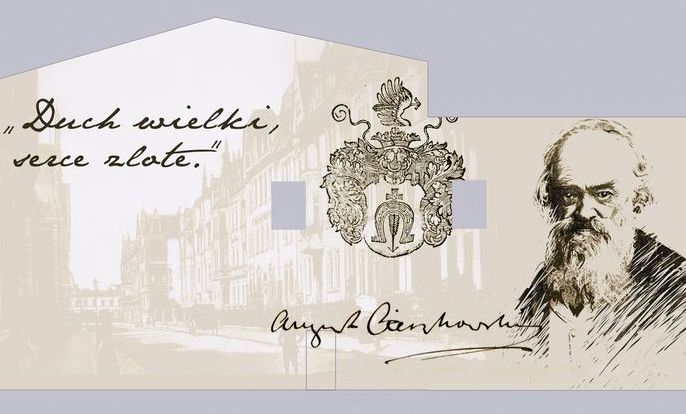 „Duch wielki,
serce złote.”
August Cieszkowski